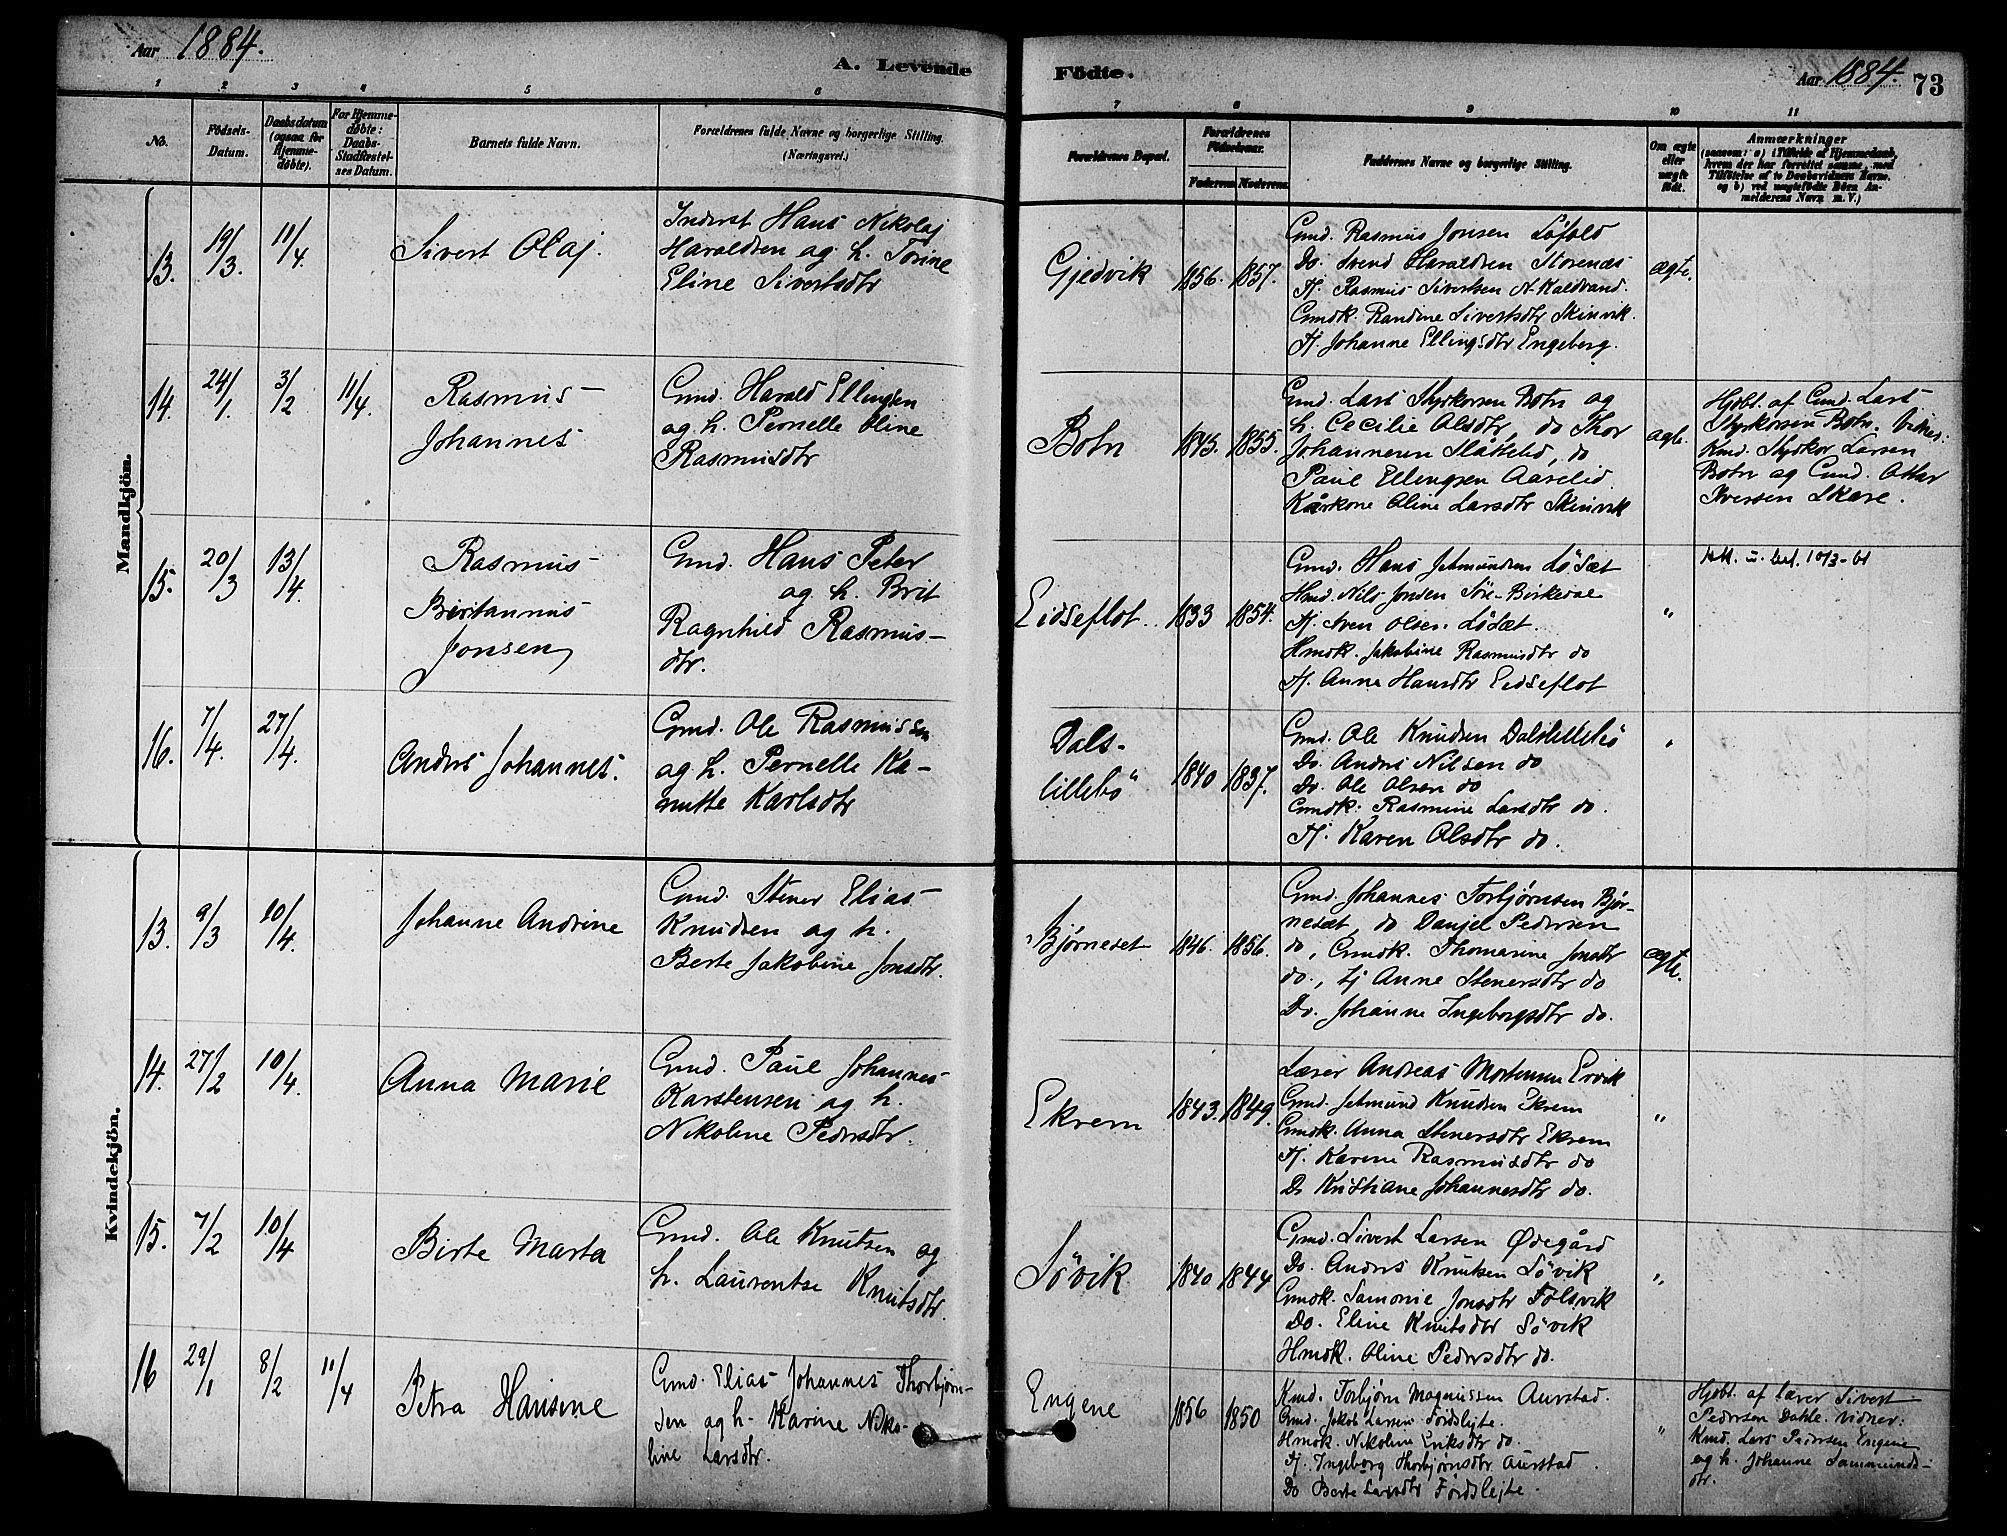 Aar 1884.
A. Levende
Födte.
Aar 1884. 73
1 2 3 4 5 6 7 8 9 10 11
No.
Födsels-
Datum.
Daabsdatum
(ogsaa for
Hjemme-
døbte).
For Hjemme-
døbte:
Daabs-
Stadfæstel-
ses Datum.
Barnets fulde Navn.
Forældrenes fulde Navne og borgerlige Stilling.
(Næringsvei.)
Forældrenes Bopæl.
Forældrenes
Födselsaar.
Faderens Moderens
Faddernes Navne og borgerlige Stilling.
Om ægte
eller
uægte
født.
Anmærkninger
(saasom: a) i Tilfælde af Hjemmedaab,
hvem der har forrettet samme, med
Tilföielse af to Daabsvidners Navne.
og b) ved uægtefödte Börn An-
melderens Navn m. V.)
Mandkjön.
13. 19/3. 11/4.
Sivert Olaj.
Inderst Hans Nikolaj
Haraldsen og h. Torine
Eline Sivertsdtr
Gjedvik 1856. 1857.
Gmd. Rasmus Jonsen Löfold
Do. Svend Haraldsen Storenæs
Tj. Rasmus Sivertsen N. Kaldvand.
Gmdk. Randine Sivertsdtr Skinvik.
Tj. Johanne Ellingsdtr Engeberg.
ægte.
14. 24/1. 3/2 11/4.
Rasmus
Johannes
Gmd. Harald Ellingsen
og h. Pernelle Oline
Rasmusdtr
Botn 1845. 1855.
Gmd. Lars Styrkorsen Botn og
h. Cecilie Olsdtr, do Thor
Johannesen Slåttelid, do
Paul Ellingsen Aarelid
Kårkone Oline Larsdtr Skinvik
ægte.
Hjdbt. af Gmd. Lars
Styrkorsen Botn. Vidner:
Kmd. Styrkor Larsen
Botn og Gmd. Ottar
Iversen Skare.
15. 20/3 13/4.
Rasmus
Bertannus
Jonsen
Gmd. Hans Peter
og h. Brit
Ragnhild Rasmus-
dtr.
Eidseflot. 1833 1854.
Gmd. Hans Jetmundsen Lösæt
Hmd. Nils Jonsen Söre-Birkedal
Tj. Sven Olsen Lösæt.
Hmdk. Jakobine Rasmusdtr do
Tj. Anne Hansdtr Eidseflot
"
16. 7/4. 27/4.
Anders Johannes.
Gmd. Ole Rasmussen
og h. Pernelle Ka-
nutte Karlsdtr
Dals-
lillebö 1840 1837.
Gmd. Ole Knudsen Dalslillebö
Do. Anders Nilsen do
Do. Ole Olsen do
Gmdk: Rasmine Larsdtr do.
Tj. Karen Olsdtr do.
"
Kvindekjön.
13. 9/3 10/4.
Johanne Andrine
Gmd. Stener Elias
Knudsen og h.
Berte Jakobine Jonsdtr.
Bjørneset 1846. 1856.
Gmd. Johannes Torbjørnsen Bjør-
nesæt, do Danjel Pedersen
do, Gmdk. Thomasine Jonsdtr
do., tj Anne Stenersdtr do
Do. Johanne Ingeborgsdtr do.
ægte.
14. 27/2 10/4.
Anna Marie
Gmd. Paul Johannes
Karstensen og h.
Nikoline Pedersdtr.
Ekrem 1843. 1849.
Lærer Andreas Mortensen Ervik
Gmd. Jetmund Knudsen Ekrem
Gmdk. Anna Stenersdtr Ekrem
Tj. Karene Rasmusdtr do
Do Kristiane Johannesdtr do.
"
15. 7/2 10/4
Birte Marta
Gmd. Ole Knutsen og
h. Laurentse Knutsdtr.
Sövik 1840 1844
Gmd. Sivert Larsen Ødegård
Do. Anders Knutsen Sövik
Gmdk. Samonie Jonsdtr Folsvik
Do. Eline Knutsdtr Sövik
Hmdk. Oline Pedersdtr do.
"
16 29/1 8/2 11/4
Petra Hansine
Gmd. Elias Johannes Thorbjørn-
sen og h. Karine Niko-
line Larsdtr.
Engene 1856 1850
Kmd. Torbjørn Magnussen Aurstad.
Gmd. Jakob Larsen Fördslejte.
Hmdk. Nikoline Eriksdtr do.
Tj. Ingeborg Thorbjørnsdtr Aurstad.
Do Berte Larsdtr Fördslejte.
"
Hjdbt. af lærer Sivert
Pedersen Dahle. Vidner:
Kmd. Lars Pedersen Engene
og h. Johanne Sammunds-
dtr.